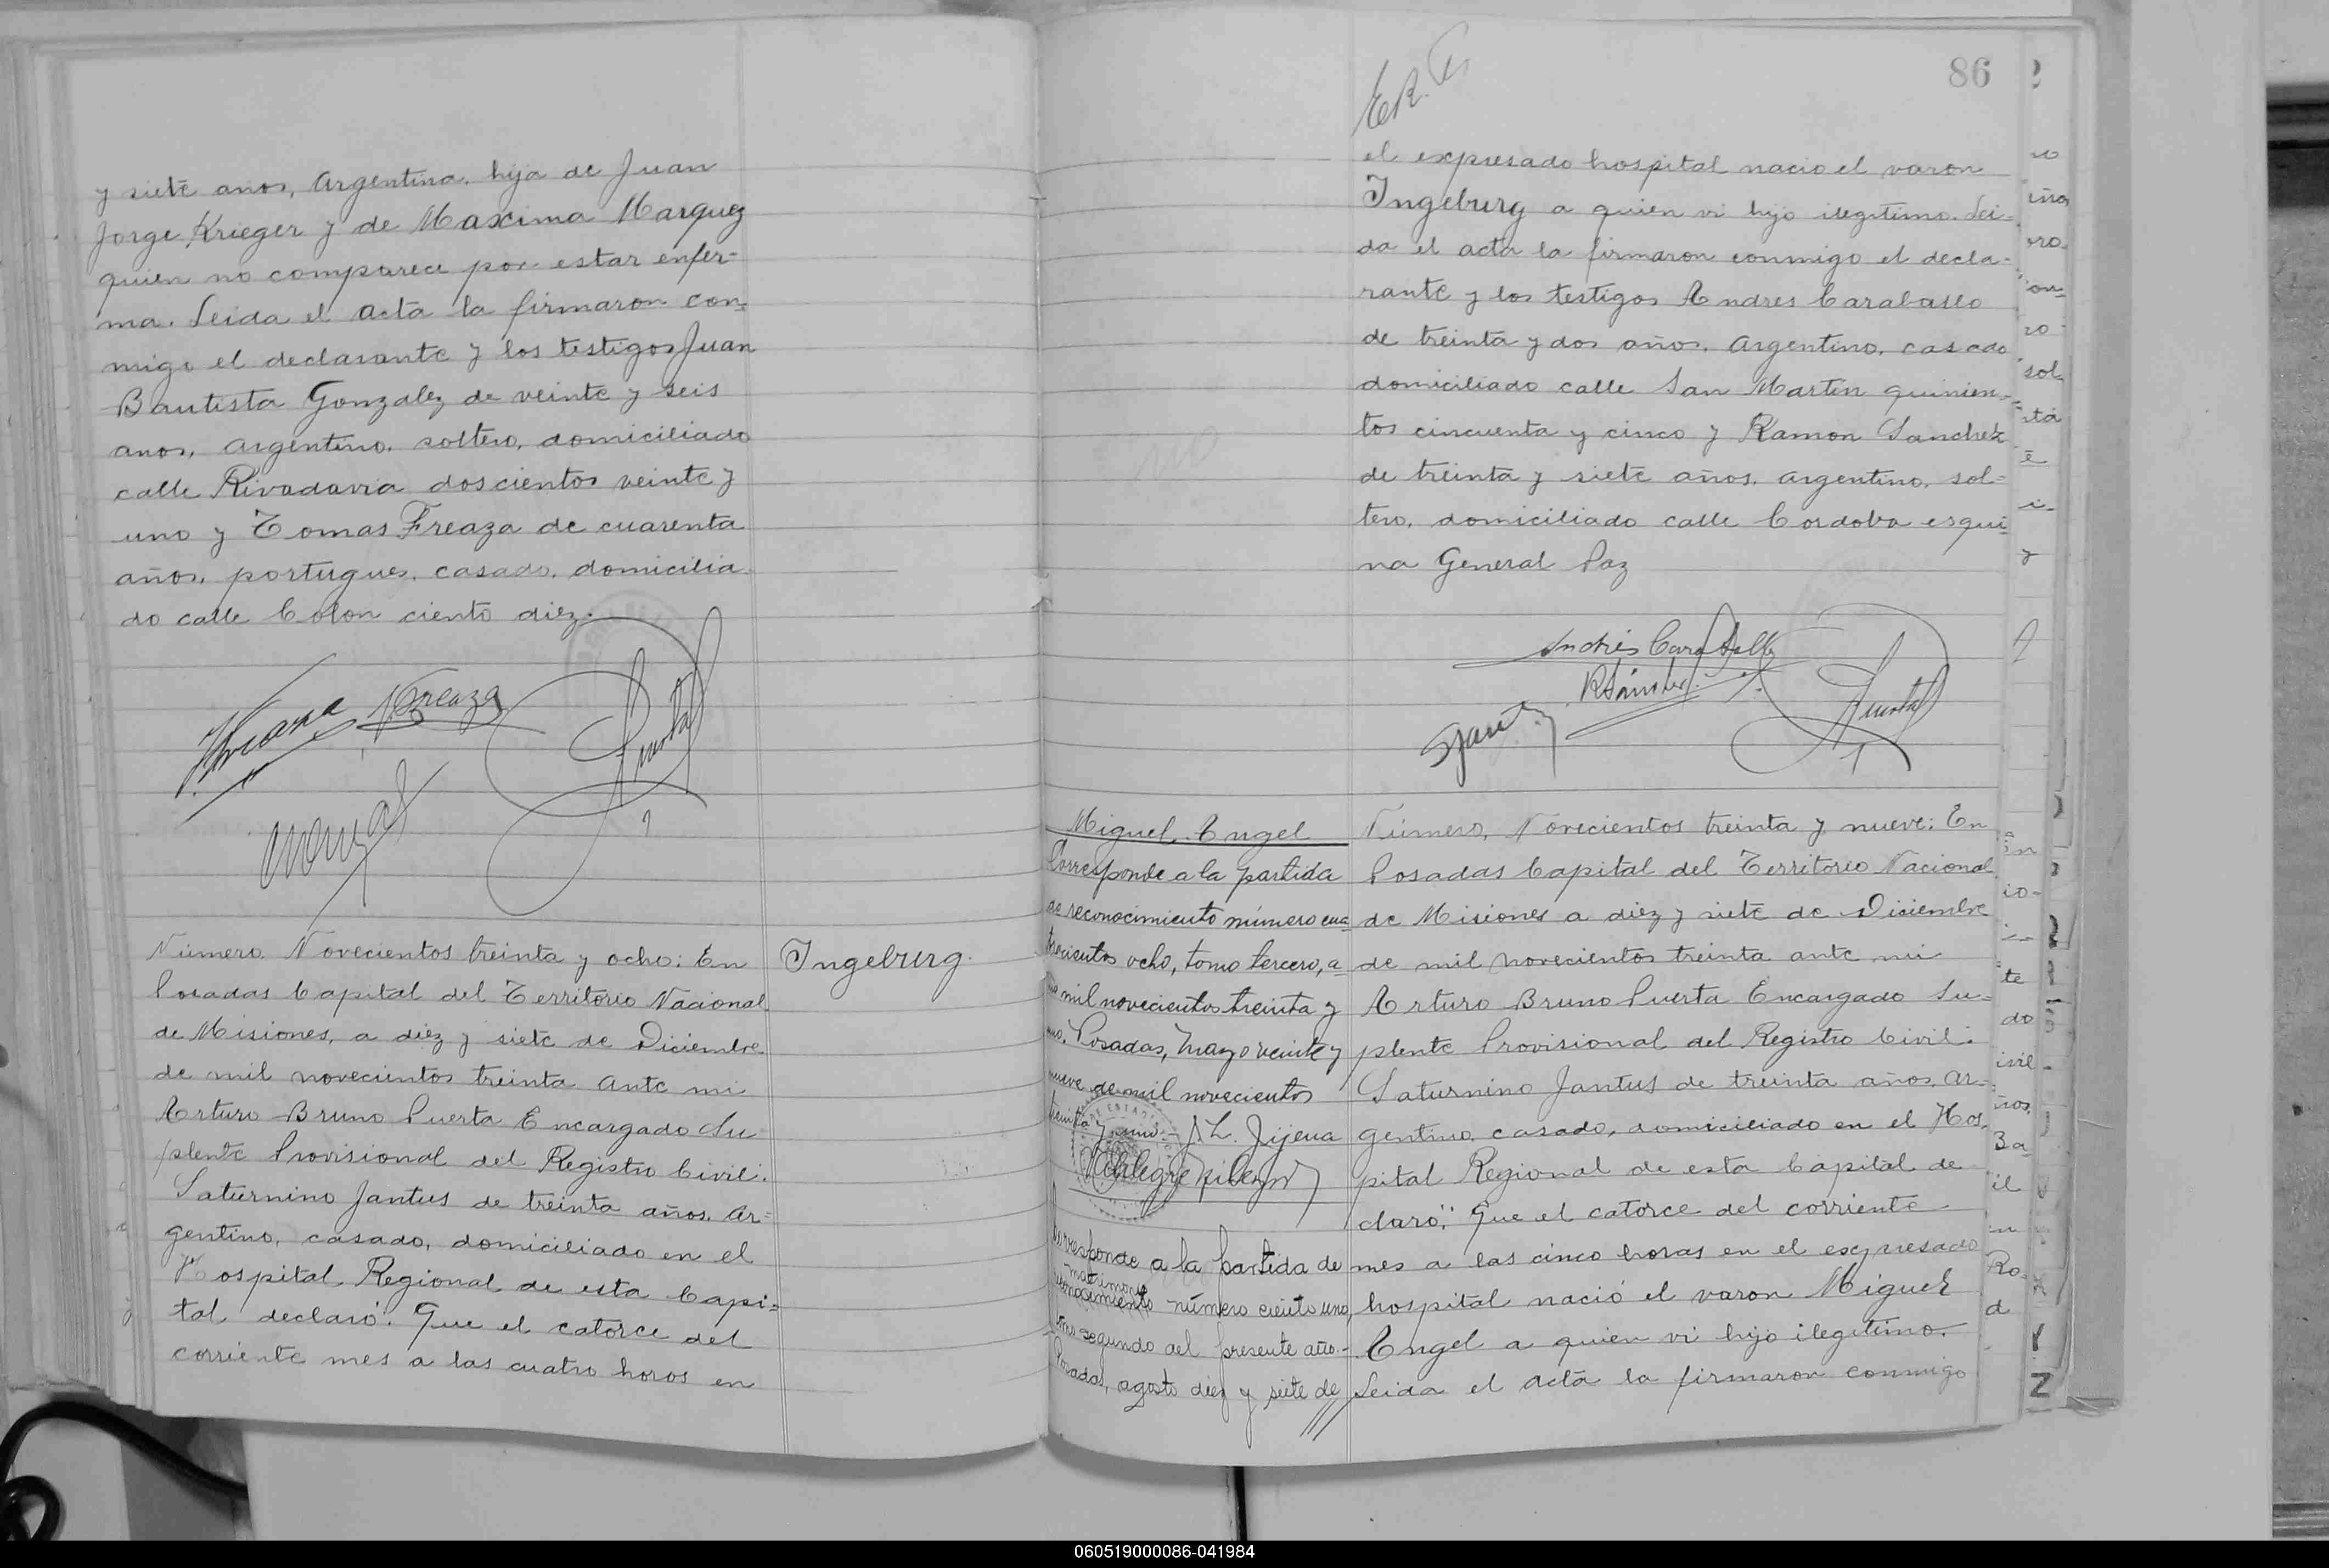 y siete años, Argentina, hija de Juan
Jorge Krieger y de Maxima Marquez
quien no comparece por estar enfer-
ma. Leida el acta la firmaron con-
migo el declarante y los testigos Juan
Bautista Gonzalez de veinte y seis
anos, argentino, soltero, domiciliado
calle Rivadavia doscientos veinte y
uno y Tomas Freaza de cuarenta
años, portugues, casado, domicilia-
do calle Colon ciento diez.
Freaza
Puerta
Número Novecientos treinta y ocho: En
Posadas Capital del Territorio Nacional
de Misiones, a diez y siete de Diciembre
de mil novecientos treinta ante mi
Arturo Bruno Puerta Encargado Su
plente Provisional del Registro Civil:
Saturnino Jantus de treinta años, ar=
gentino, casado, domiciliado en el
Hospital Regional de esta Capi=
tal, declaró: Que el catorce del
corriente mes a las cuatro horas en
Ingeburg.
86
el expresado hospital nacio el varon
Ingeburg a quien vi hijo ilegitimo. Lei=
da el acta la firmaron conmigo el decla-
rante y los testigos Andres Caraballo
de treinta y dos años, argentino, casado
domiciliado calle San Martin quinien-
tos cincuenta y cinco y Ramon Sanchez
de treinta y siete años, argentino, sol=
tero, domiciliado calle Cordoba esqui=
na General Paz
Andrés Caraballo
RSánchez
SJantus
Puerta
Miguel Angel
Corresponde a la partida
de reconocimiento número cua=
trocientos ocho, tomo tercero, a=
ño mil novecientos treinta y
uno. Posadas, Mayo veinte y
nueve de mil novecientos
treinta y uno.- L. Jijena
Corresponde a la partida de
matrimonio
reconocimiento número ciento uno,
tomo segundo del presente año.-
Posadas, agosto diez y siete de
Número, Novecientos treinta y nueve: En
Posadas Capital del Territorio Nacional
de Misiones a diez y siete de Diciembre
de mil novecientos treinta ante mi
Arturo Bruno Puerta Encargado Su=
plente Provisional del Registro Civil:
Saturnino Jantus de treinta años, ar=
gentino, casado, domiciliado en el Hos
pital Regional de esta Capital de
claró: Que el catorce del corriente
mes a las cinco horas en el expresado
hospital nació el varon Miguel
Angel a quien vi hijo ilegitimo.
Leida el acta la firmaron conmigo
060519000086-041984